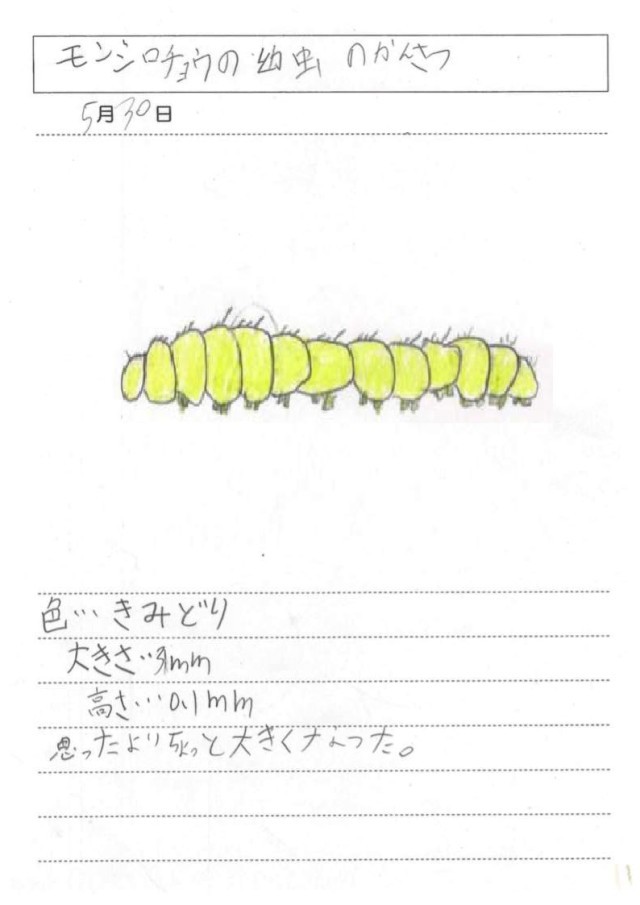 モンシロチョウの幼虫のかんさつ
5月30日
色…きみどり
大きさ…3mm
高さ…0.1mm
思ったよりちょっと大きくなった。
11